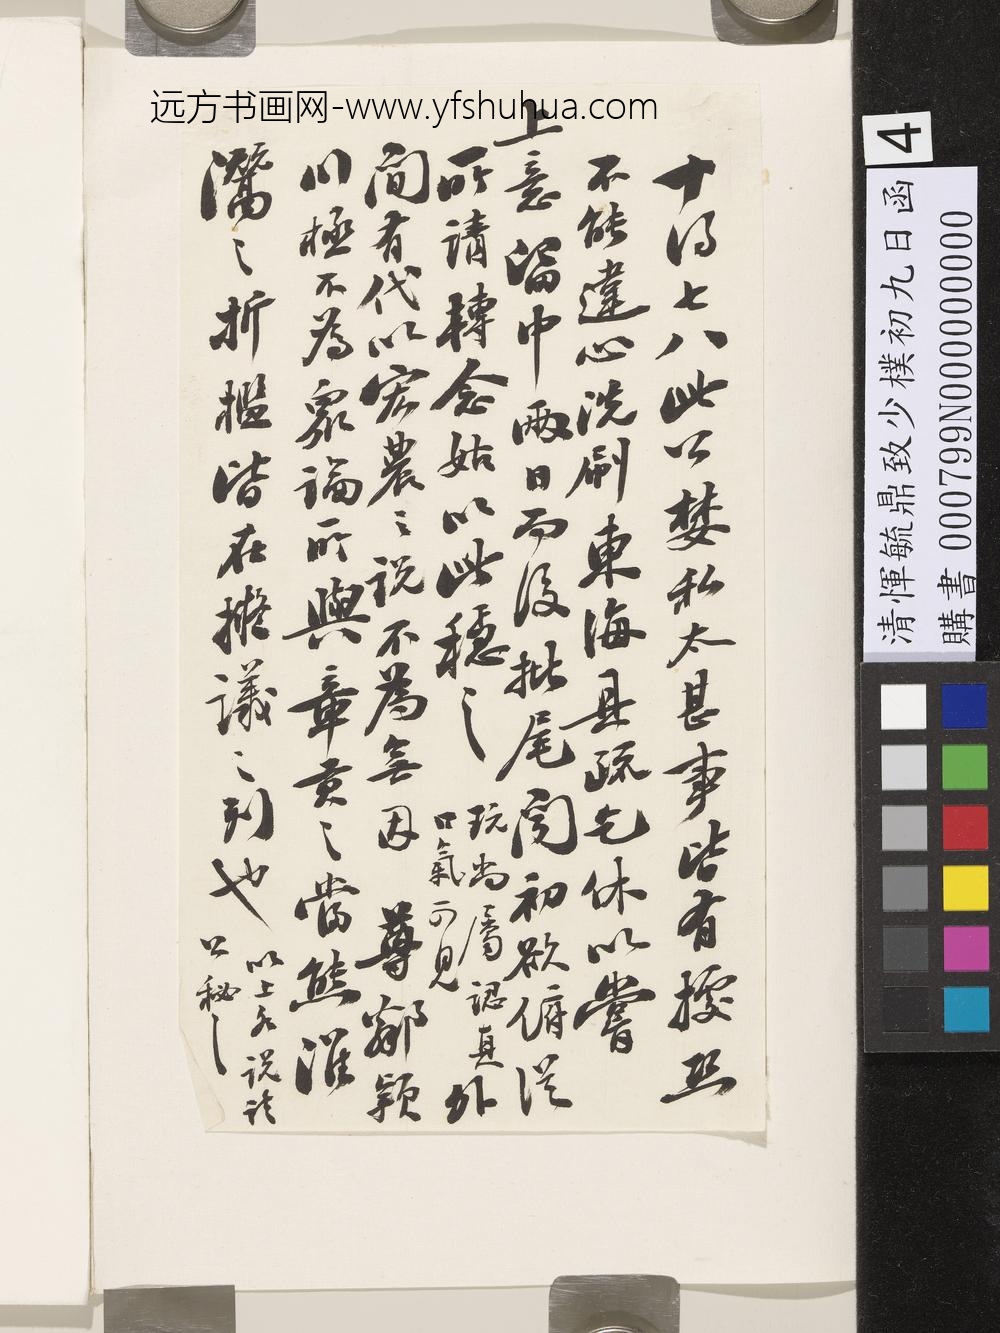 远方书画网-www.yfshuhua.com
十得七八此公婪私太甚事皆有據恐
不能違心洗刷東海且疏乞休以嘗
上意留中兩日而後批尾閱初欲俯從
所請轉念姑以此穩之
玩尚屬認真
口氣可見
外
間有代以宏農之說不為無因 尊鄰潁
川極不為衆論所與章貢之當熊淮
灊之折檻皆在擬議之列也
以上各說請
公秘之
4
清惲毓鼎致少樸初九日函
購書 000799N000000000